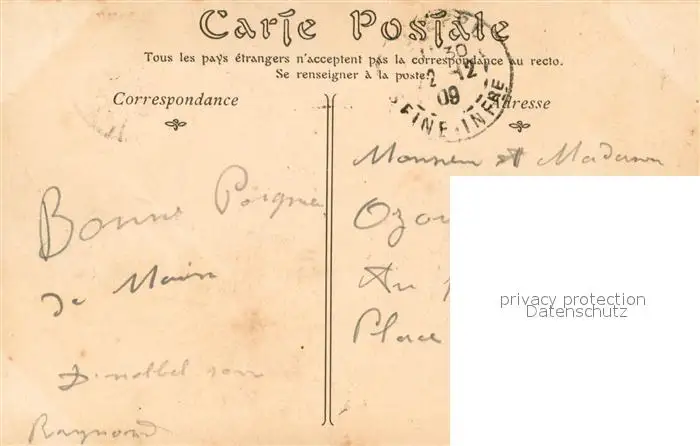 Carte Postale
Tous les pays étrangers n'acceptent pas la correspondance au recto.
Se renseigner à la poste.
Correspondance
Adresse
30
2 -12
09
SEINE-INFRE
Bonne Poignée
de Main
Raymond
Monsieur et Madame
Au
Place
privacy protection
Datenschutz